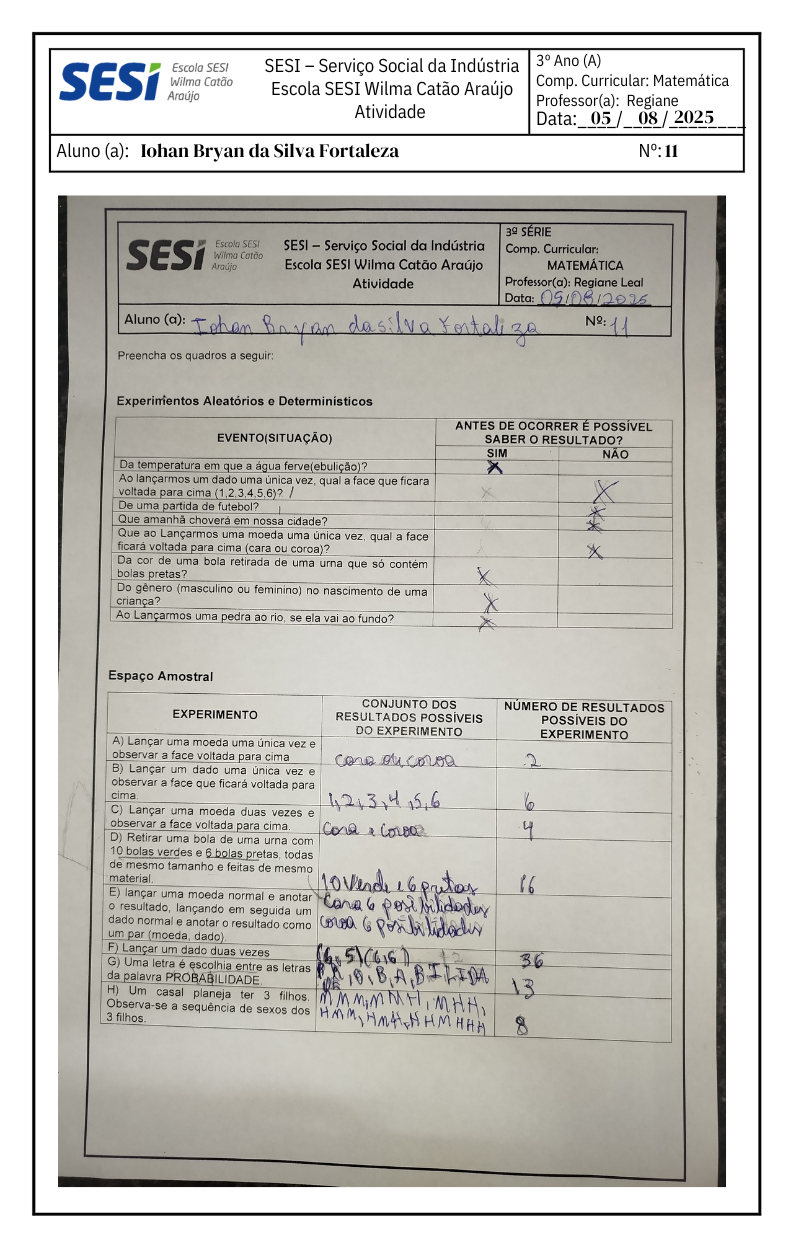 SESI
Escola SESI
Wilma Catão
Araújo
SESI – Serviço Social da Indústria
Escola SESI Wilma Catão Araújo
Atividade
3º Ano (A)
Comp. Curricular: Matemática
Professor(a): Regiane
Data:____05/__08/_2025___
Aluno (a): Iohan Bryan da Silva Fortaleza
Nº: 11
SESI
Escola SESI
Wilma Catão
Araújo
SESI – Serviço Social da Indústria
Escola SESI Wilma Catão Araújo
Atividade
3º SÉRIE
Comp. Curricular:
MATEMÁTICA
Professor(a): Regiane Leal
Data: 05/08/2025
Aluno (a): Iohan Bryan da silva Fortaliza Nº: 11
Preencha os quadros a seguir:
Experimentos Aleatórios e Determinísticos
EVENTO(SITUAÇÃO)
ANTES DE OCORRER É POSSÍVEL
SABER O RESULTADO?
SIM NÃO
Da temperatura em que a água ferve(ebulição)? X
Ao lançarmos um dado uma única vez, qual a face que ficara
voltada para cima (1,2,3,4,5,6)? X
De uma partida de futebol? X
Que amanhã choverá em nossa cidade? X
Que ao Lançarmos uma moeda uma única vez, qual a face
ficará voltada para cima (cara ou coroa)? X
Da cor de uma bola retirada de uma urna que só contém
bolas pretas? X
Do gênero (masculino ou feminino) no nascimento de uma
criança? X
Ao Lançarmos uma pedra ao rio, se ela vai ao fundo? X
Espaço Amostral
EXPERIMENTO
CONJUNTO DOS
RESULTADOS POSSÍVEIS
DO EXPERIMENTO
NÚMERO DE RESULTADOS
POSSÍVEIS DO
EXPERIMENTO
A) Lançar uma moeda uma única vez e
observar a face voltada para cima
cara ou coroa
2
B) Lançar um dado uma única vez e
observar a face que ficará voltada para
cima.
1,2,3,4,5,6
6
C) Lançar uma moeda duas vezes e
observar a face voltada para cima.
Cara e coroa
4
D) Retirar uma bola de uma urna com
10 bolas verdes e 6 bolas pretas, todas
de mesmo tamanho e feitas de mesmo
material.
10 Verde e 6 pretas
16
E) lançar uma moeda normal e anotar
o resultado, lançando em seguida um
dado normal e anotar o resultado como
um par (moeda, dado).
Cara 6 posibilidades
coroa 6 posibilidades
F) Lançar um dado duas vezes
(6,5)(6,6)
36
G) Uma letra é escolhia entre as letras
da palavra PROBABILIDADE.
B, A, B I L I D A
13
H) Um casal planeja ter 3 filhos.
Observa-se a sequência de sexos dos
3 filhos.
MMM, MMH, MHH,
HMM, HMH, HHM HHH
8